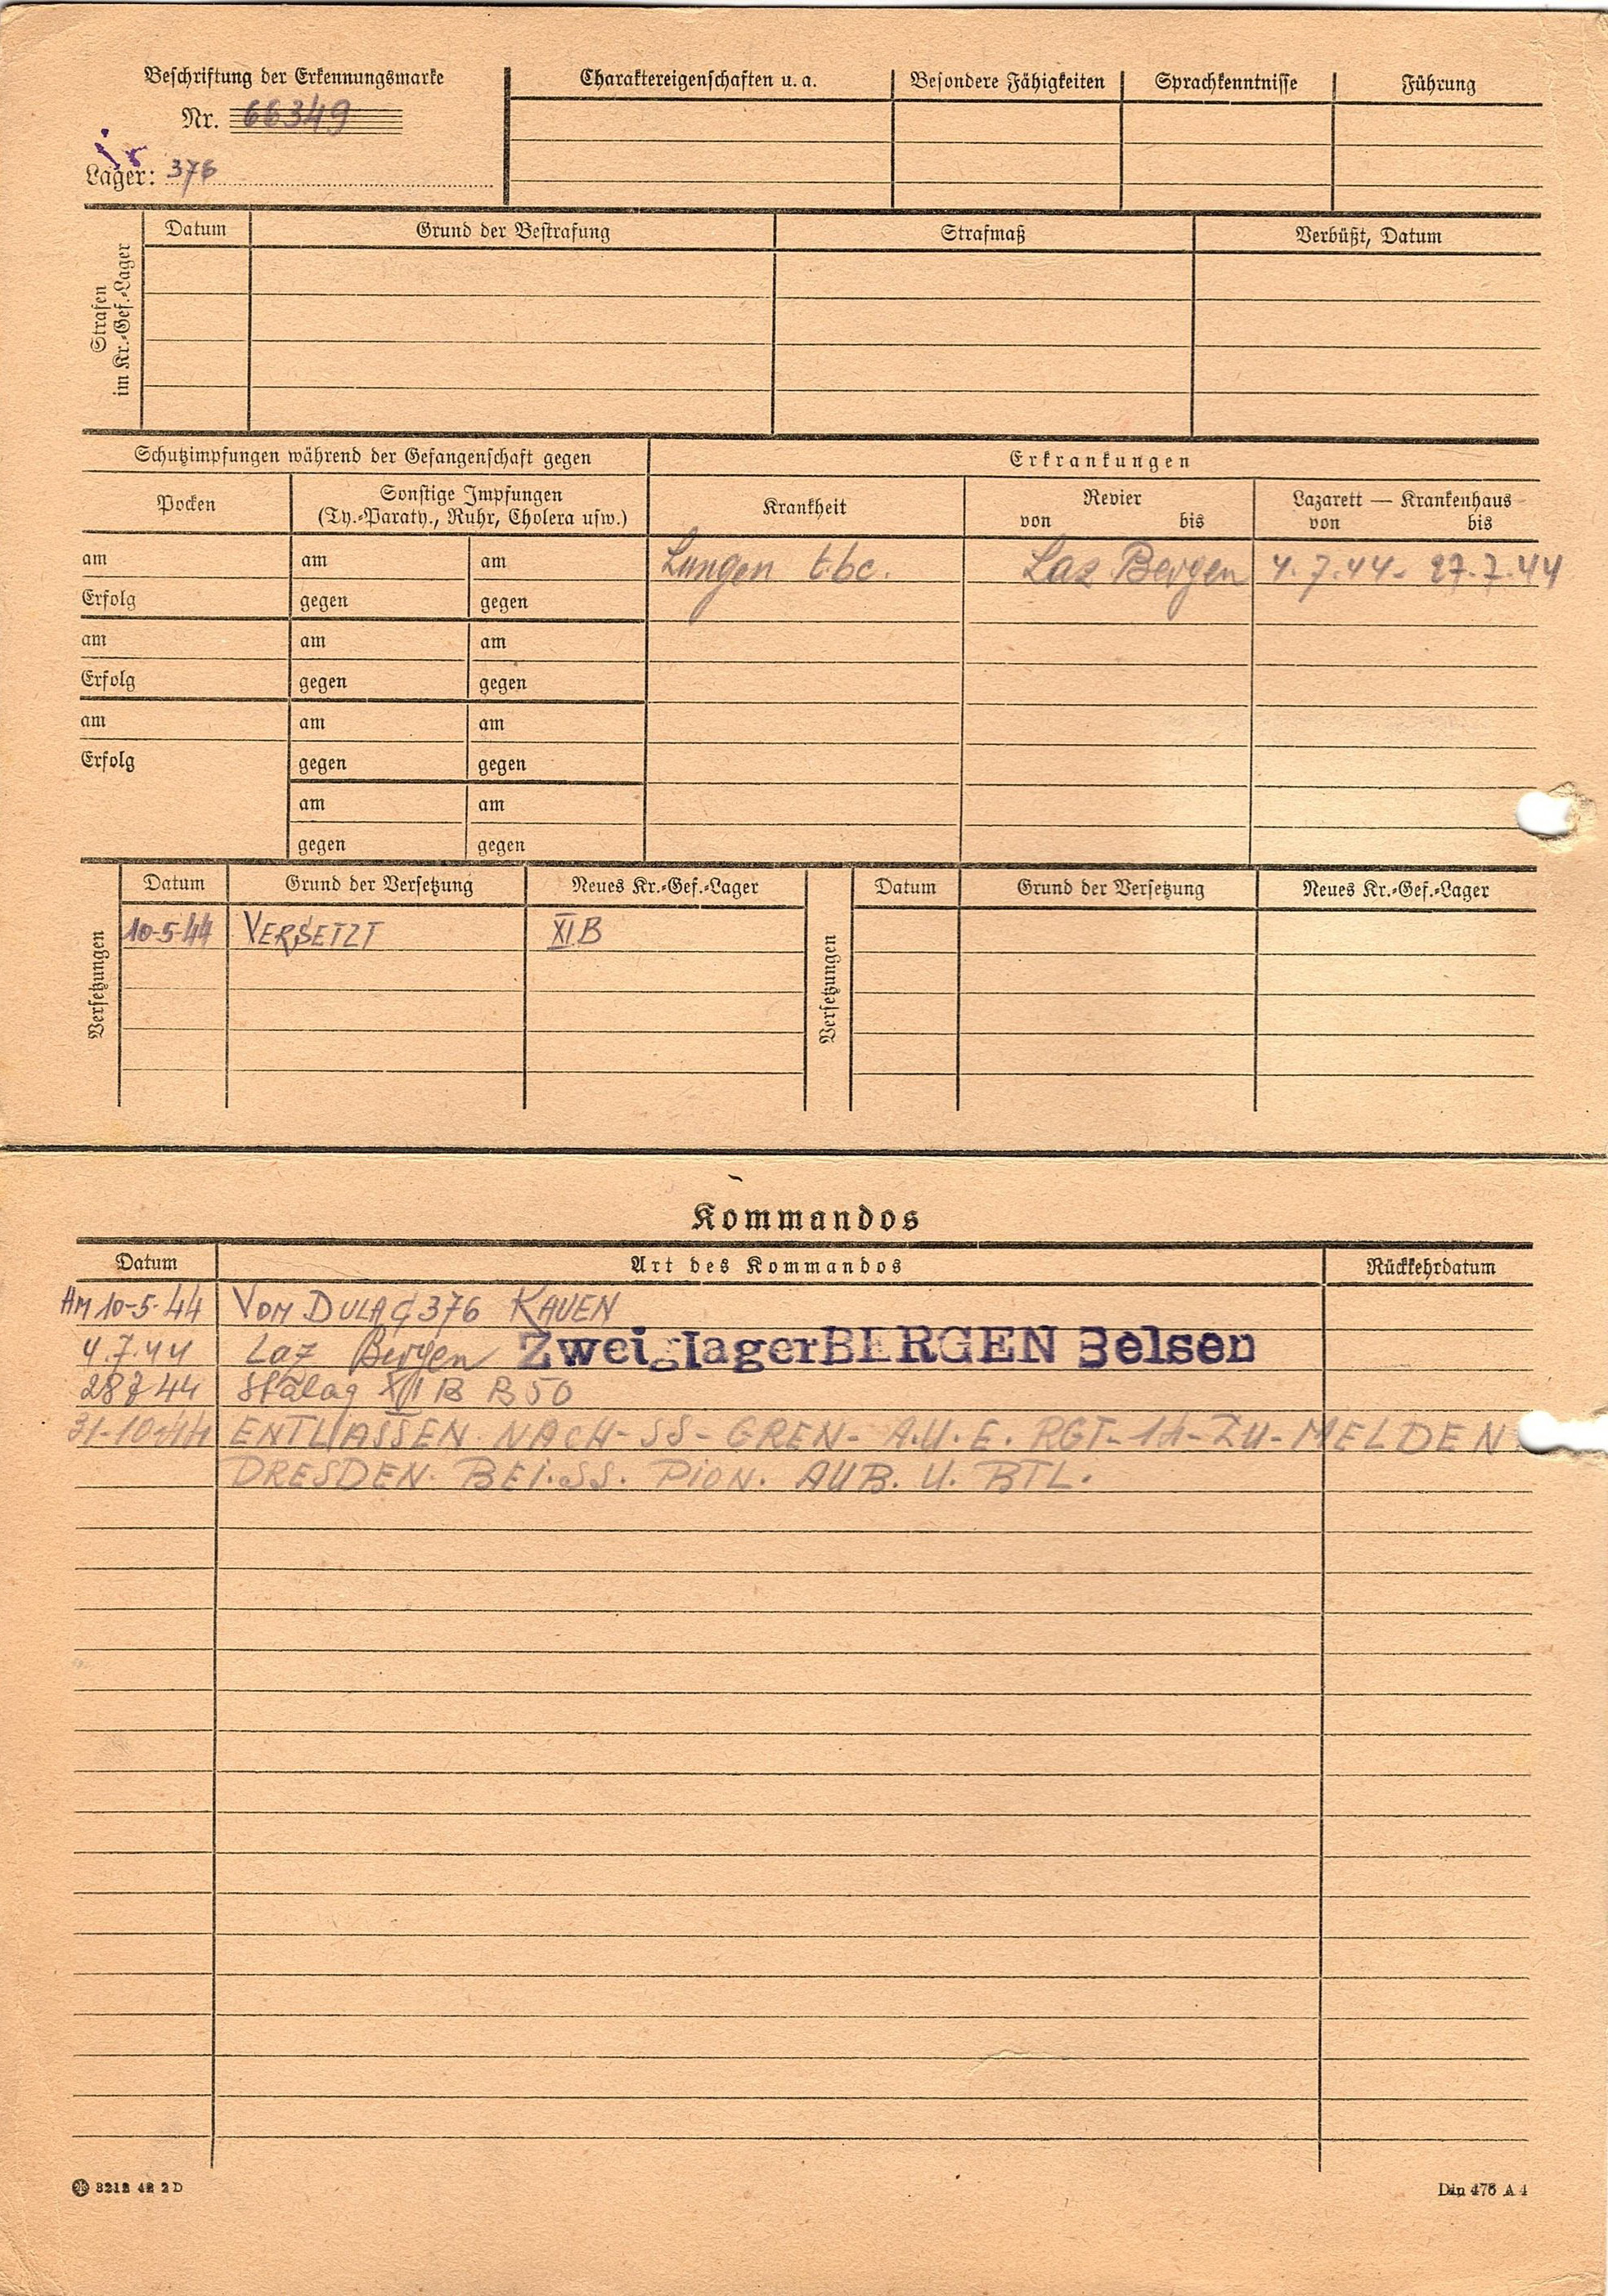 Beschriftung der Erkennungsmarke
Nr. 66349
Lager: 376
Charaktereigenschaften u. a. Besondere Fähigkeiten Sprachkenntnisse Führung
Strafen im Kr.-Gef.-Lager
Datum Grund der Bestrafung Strafmaß Verbüßt, Datum
Schutzimpfungen während der Gefangenschaft gegen
Erkrankungen
Pocken
Sonstige Impfungen
(Ty.-Paraty., Ruhr, Cholera usw.)
Krankheit
Revier
von bis
Lazarett — Krankenhaus
von bis
am am am Lungen tbc. Laz Bergen 4.7.44- 27.7.44
Erfolg gegen gegen
am am am
Erfolg gegen gegen
am am am
Erfolg gegen gegen
am am
gegen gegen
Versetzungen
Datum Grund der Versetzung Neues Kr.-Gef.-Lager
10-5-44 VERSETZT XI B
Versetzungen
Datum Grund der Versetzung Neues Kr.-Gef.-Lager
Kommandos
Datum Art des Kommandos Rückkehrdatum
AM 10-5-44 VOM DULAG 376 KAUEN
4.7.44 Laz Bergen ZweiglagerBERGEN Belsen
28 7 44 Stalag XI B B 50
31-10-44 ENTLASSEN NACH-SS-GREN-A.U.E. RGT-11-ZU-MELDEN
DRESDEN. BEI.SS. PION. AUB. U. BTL.
3212 42 2 D
Din 476 A 4